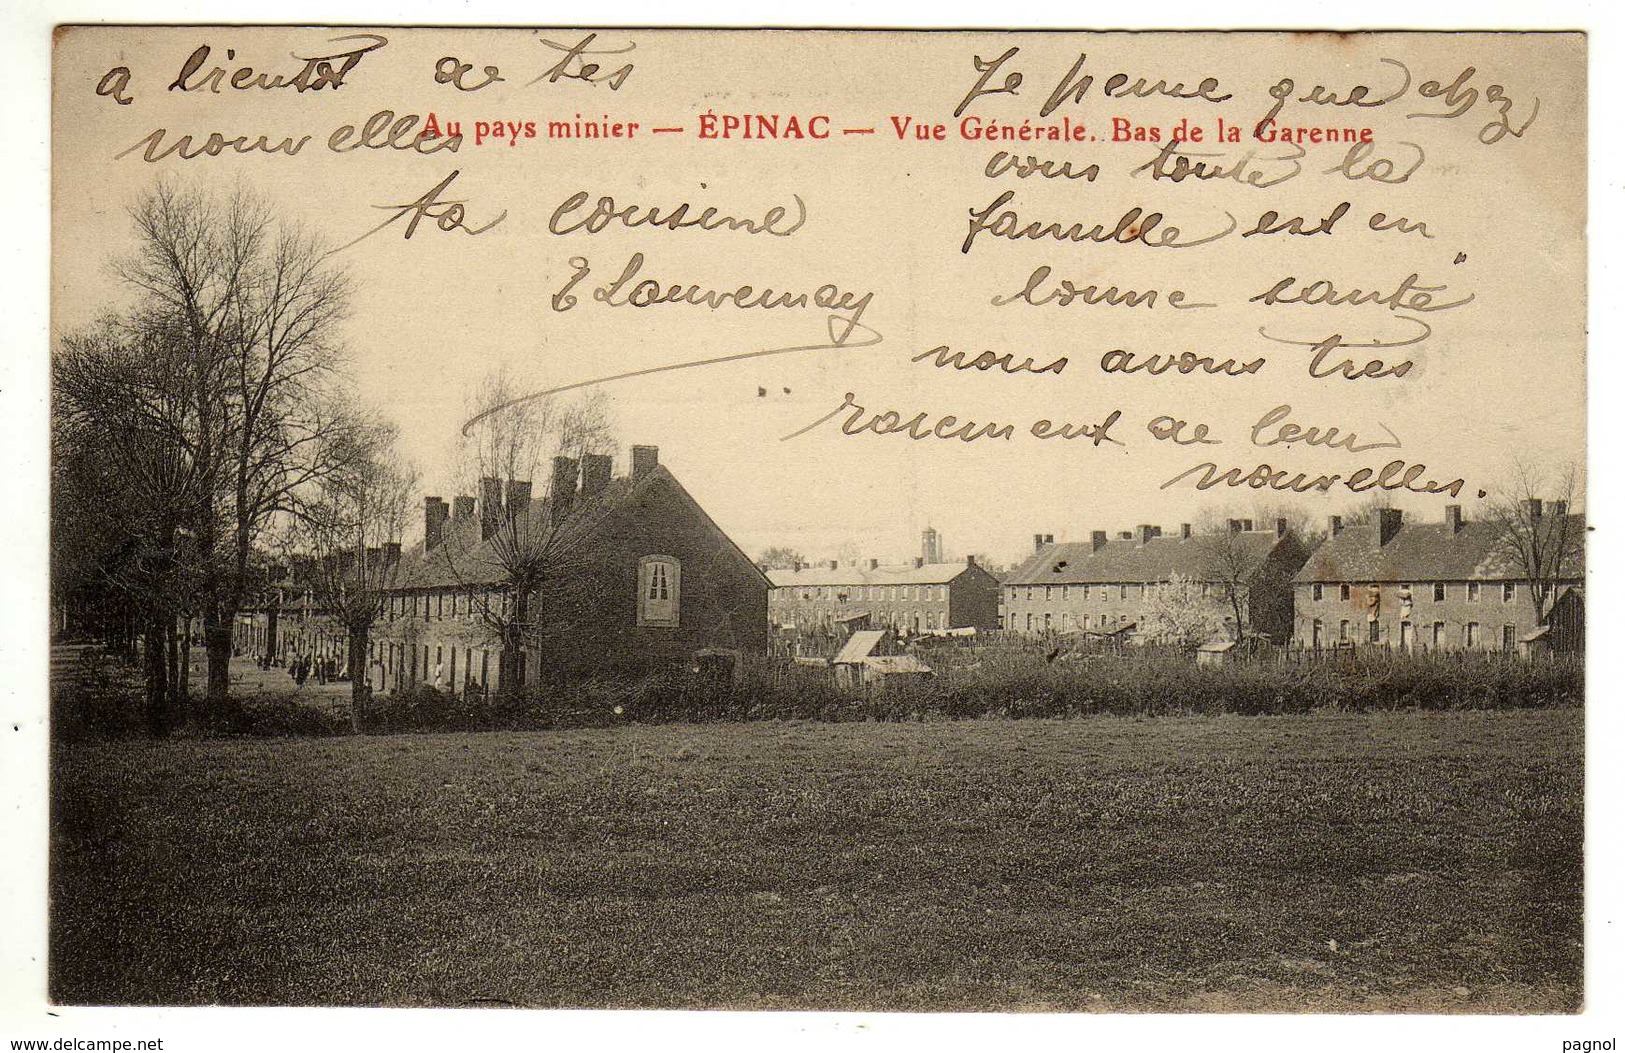 Au pays minier — ÉPINAC — Vue Générale. Bas de la Garenne
Je pense que chez
vous toute la
famille est en
bonne santé
nous avons très
rarement de leur
nouvelles.
a bientot de tes
nouvelles
ta cousine
E Louvernay
www.delcampe.net
pagnol